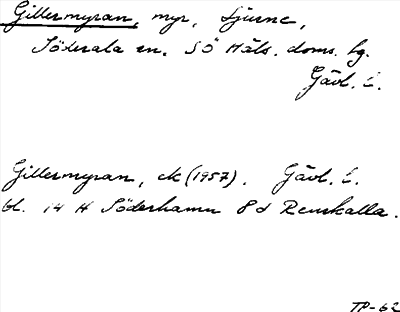 Gillermyran, myr, Ljusne,
Söderala sn. SÖ Häls. doms. hg.
Gävl. l.
Gillermyran, ek (1957). Gävl. l.
bl. 14 H Söderhamn 8 d Renskalla.
TP-62